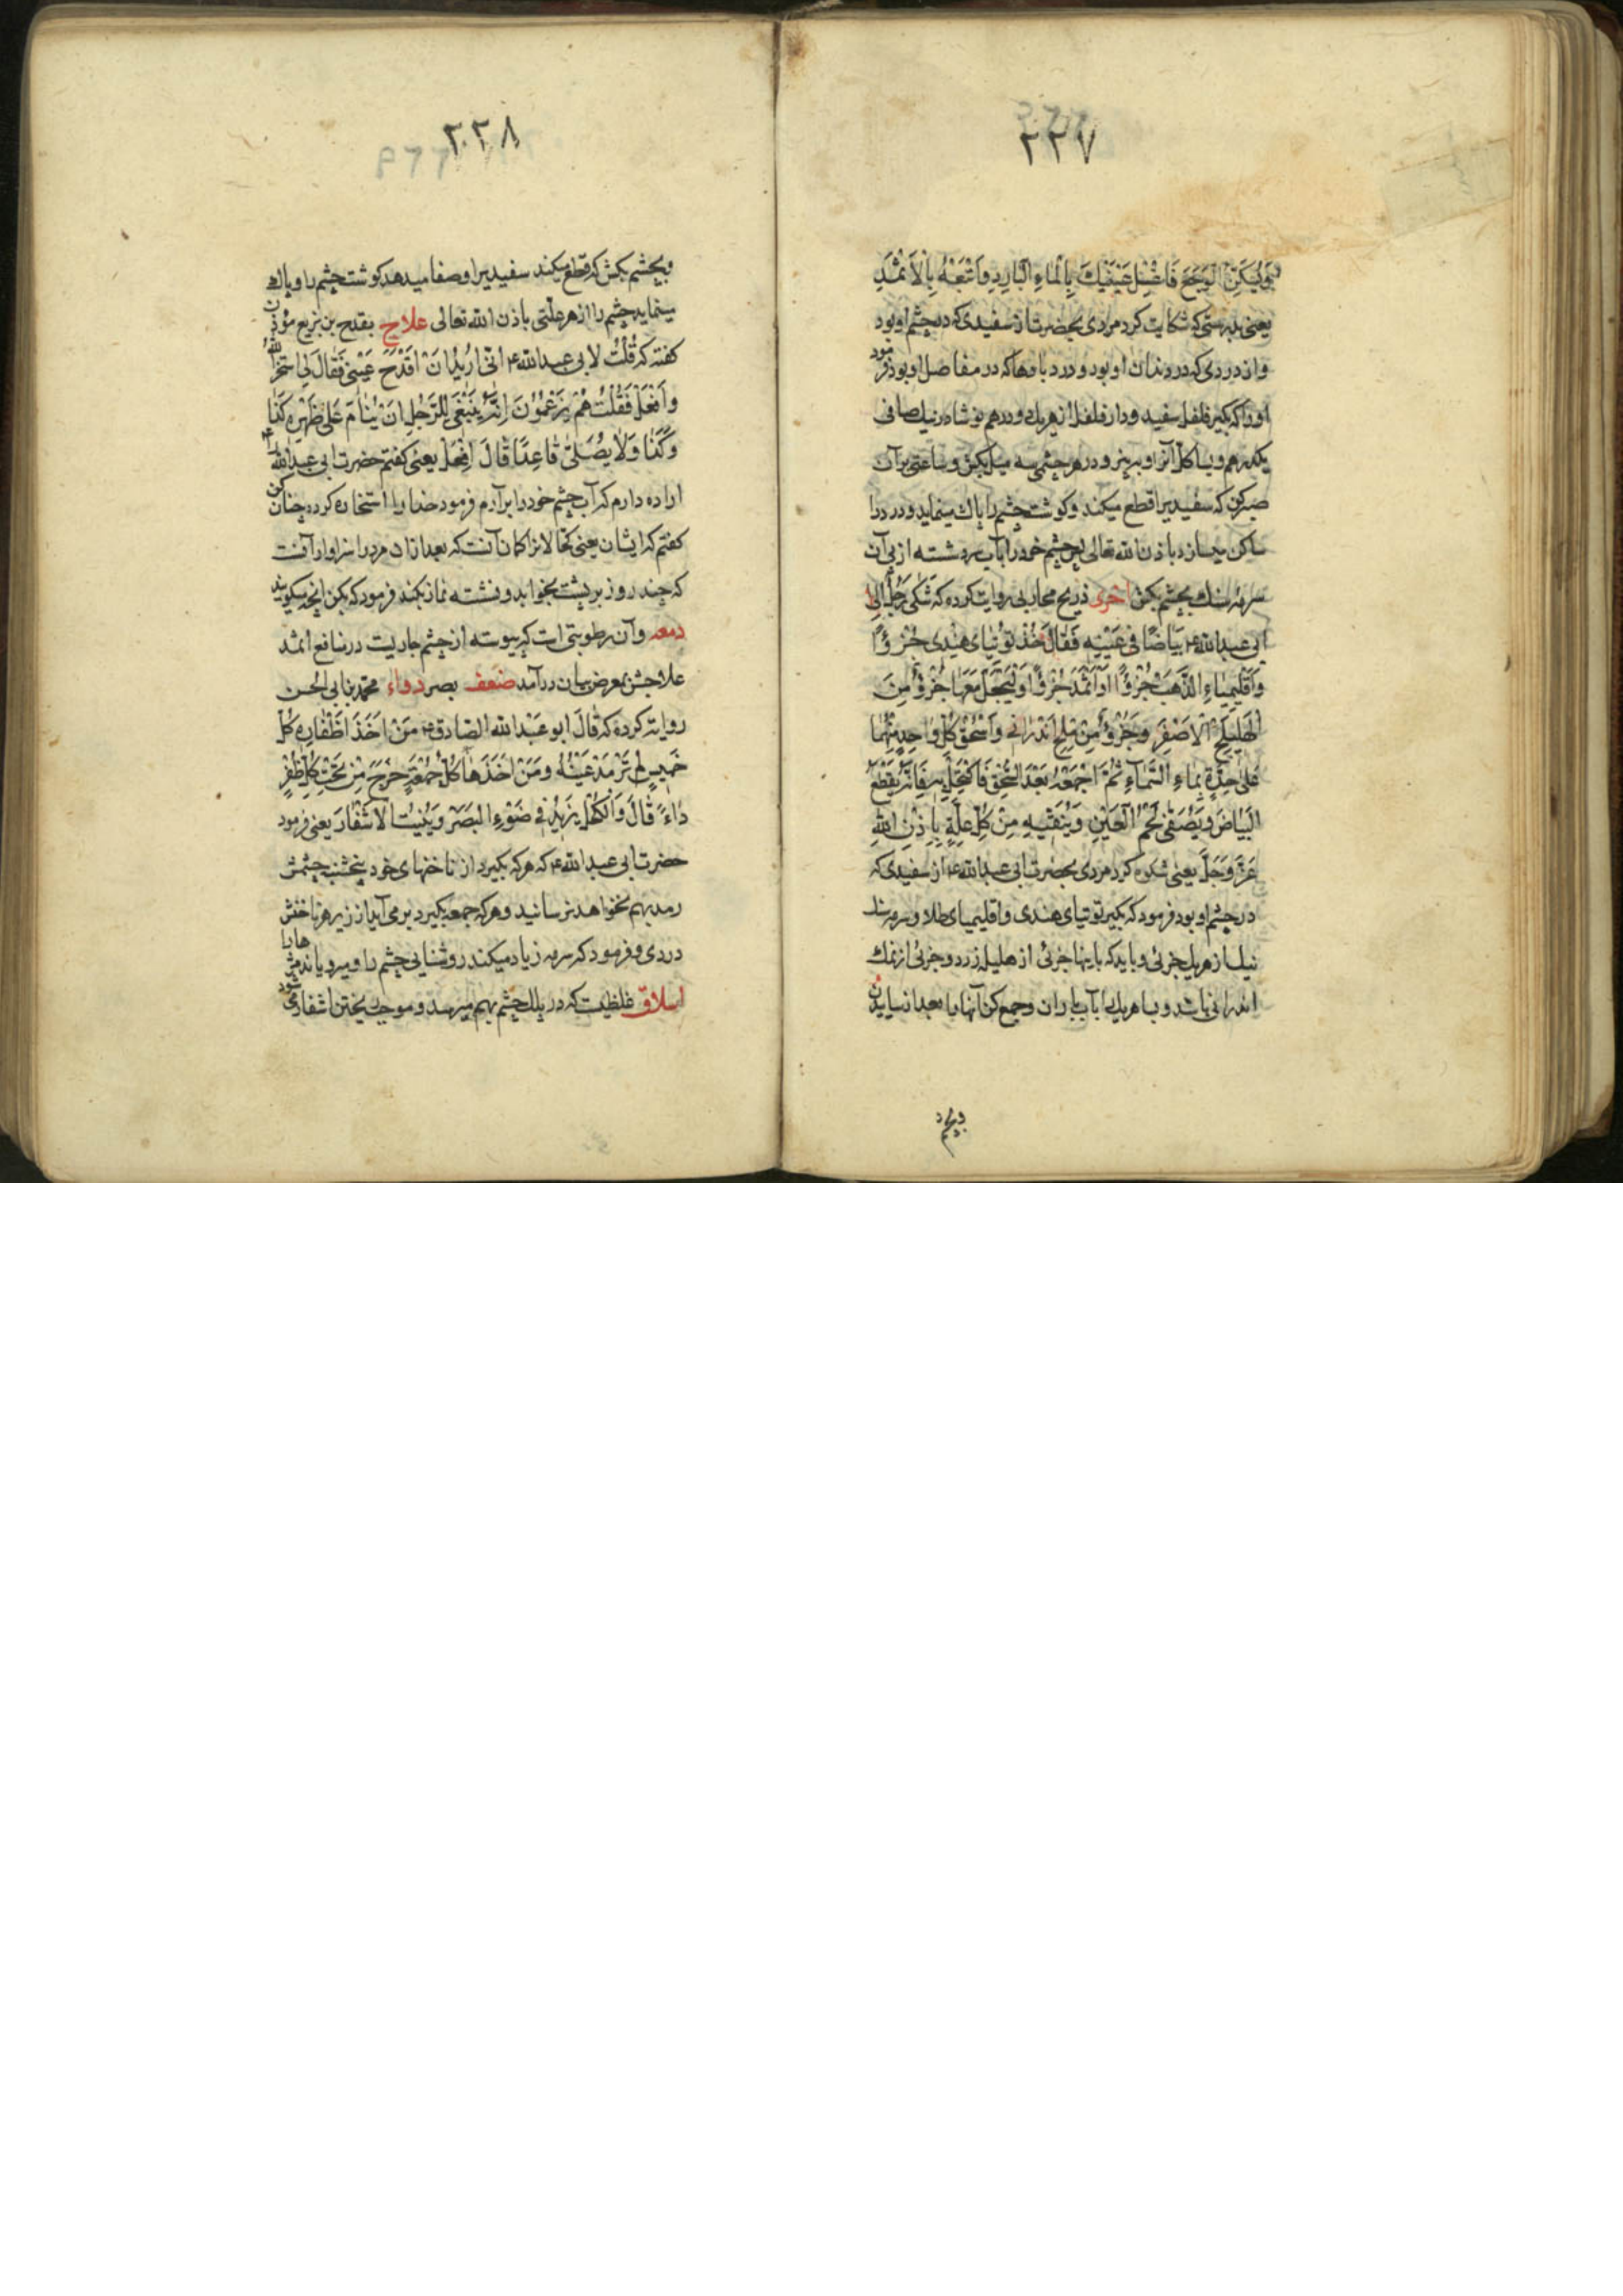 ۲۲۷
وَیُسَکِّنُ الْوَجَعَ فَاغْسِلْ عَیْنَیْكَ بِالْمَاءِ الْبَارِدِ وَاَتْبِعْهُ بِالْاَثْمَدِ
یعنی بدرستی که شکایت کرد مردی بحضرت از سفیدی که در چشم او بود
و از دردی که در دندان او بود و درد بادها که در مفاصل او بود فرمود
او را که بکیر فلفل سفید و دار فلفل از هریك دو درهم نوشادر نیك صافی
یکدرهم و بسا کل آنرا و به پز و در هر چشمی سه میل بکش و ساعتی بر آن
صبر کن که سفیدیرا قطع میکند و کوشت چشم را پاك مینماید و درد را
ساکن میسازد باذن الله تعالی پس چشم خود را بآب سرد شسته از پی آن
سرمه سنك بچشم بکش اخری ذریح محاربی روایت کرده که شَکی رَجُلٌ اِلی
ابی عبدالله ع بَیَاضًا فی عَیْنِه فَقَالَ خُذْ تُوْتِیَای هِنْدِی جُزْؤًا
وَاَقْلِیمِیَاءِ الذَّهَبِ جُزْؤًا اَوْ اَثْمَدَ جُزْؤًا وَلْیَجْعَلْ مَعَهَا جُزْؤٌ مِنَ
الْهَلِیلَجِ الْاَصْفَرِ وَجُزْؤٌ مِنْ مِلْحِ اَنْدَرَانِی وَاَسْحَقْ کُلَّ وَاحِدٍ مِنْهُمَا
عَلٰی حِدَّةٍ بِمَاءِ السَّمَاءِ ثُمَّ اجْمَعْهُ بَعْدَ السَّحْقِ فَاکْتَحِلْ بِه فَاِنَّه یَقْطَعُ
الْبَیَاضَ وَیُصَفّی لَحْمَ الْعَیْنِ وَیُنَقّیهِ مِنْ کُلِّ عِلَّةٍ بِاِذْنِ اللهِ
عَزَّ وَجَلَّ یعنی شکوه کرد مردی بحضرت ابی عبدالله ع از سفیدی که
در چشم او بود فرمود که بکیر توتیای هندی و اقلیمیای طلا و سرمه سنك
از هریك جزئی و باید که با اینها جزئی از هلیله زرد و جزئی از نمك
اندرانی باشد و بسا هریك را بآب باران و جمع کن آنها را بعد از سائیدن
و بچشم
۲۲۸
و بچشم بکش که قطع میکند سفیدیرا و صفا میدهد کوشت چشم را و پاك
مینماید چشم را از هر علتی باذن الله تعالی علاج بقدح بن بزیع مؤذن
کفته که قُلْتُ لابی عبدالله ع انّی اُرِیْدُ اَنْ اَقْدَحَ عَیْنی فَقَالَ لِی اسْتَخِرِ اللهَ
وَاَفْعَلْ فَقُلْتُ هُمْ یَزْعَمُوْنَ اِنَّهُ یَنْبَغی لِلرَّجُلِ اَنْ یَنَامَ عَلٰی ظَهْرِه کَذَا
وَکَذَا وَلَا یُصَلّی قَاعِدًا قَالَ اِفْعَلْ یعنی کفتم حضرت ابی عبدالله را ع
اراده دارم که آب چشم خود را برآرم فرمود خدا را استخاره کرده چنان کن
کفتم که ایشان یعنی کحالانرا کمان آنست که بعد از آن مرد را سزاوار آنست
که چند روز بر پشت بخوابد و نشسته نماز بکند فرمود که بکن انچه میکویند
دمعه و آن رطوبتی است که پیوسته از چشم جاریست در منافع اثمد
علاجش بمعرض بیان درآمد ضعف بصر دواء محمد بن ابی الحسن
روایت کرده که قَالَ ابو عَبْدالله الصّادق ع مَنْ اَخَذَ اَظْفَارِه کُلَّ
خَمِیسٍ لَمْ تَرْمَدْ عَیْنُهُ وَمَنْ اَخَذَهَا کُلَّ جُمْعَةٍ خَرَجَ مِنْ تَحْتِ کُلِّ ظُفْرٍ
دَاءٌ قَالَ وَالْکُحْلُ یَزِیْدُ فی ضَوْءِ الْبَصَرِ وَیُنْبِتُ الْاَشْفَارَ یعنی فرمود
حضرت ابی عبدالله ع که هر که بکیرد از ناخنهای خود پنجشنبه چشمش
رمد بهم نخواهد رسانید و هر که جمعه بکیرد برمی آید از زیر هر ناخنش
دردی و فرمود که سرمه زیاد میکند روشنایی چشم را و میرویاند مژه‌ها را
اسلاق غلظیست که در پلك چشم بهم میرسد و موجب ریختن اشفار می شود